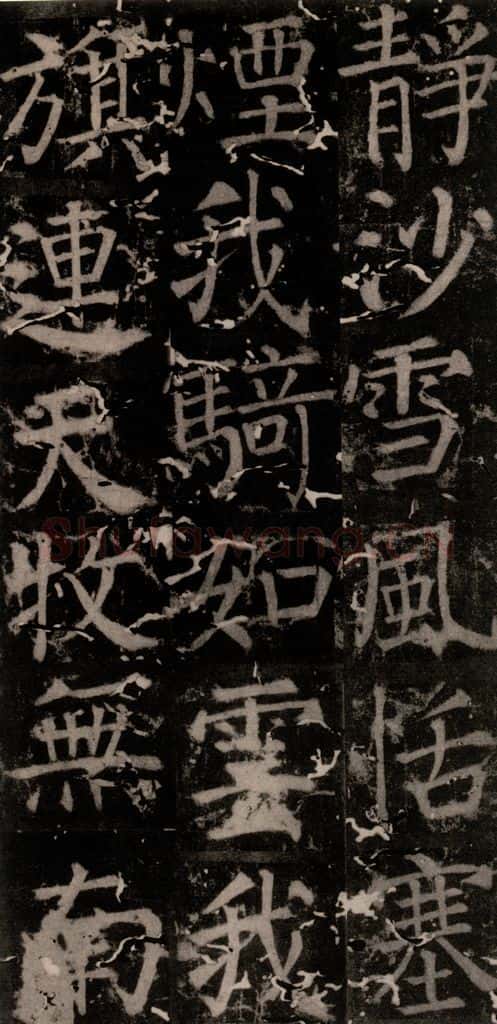 靜沙雪風恬塞
煙我騎如雲我
旗連天牧無南
Shufawang.cn